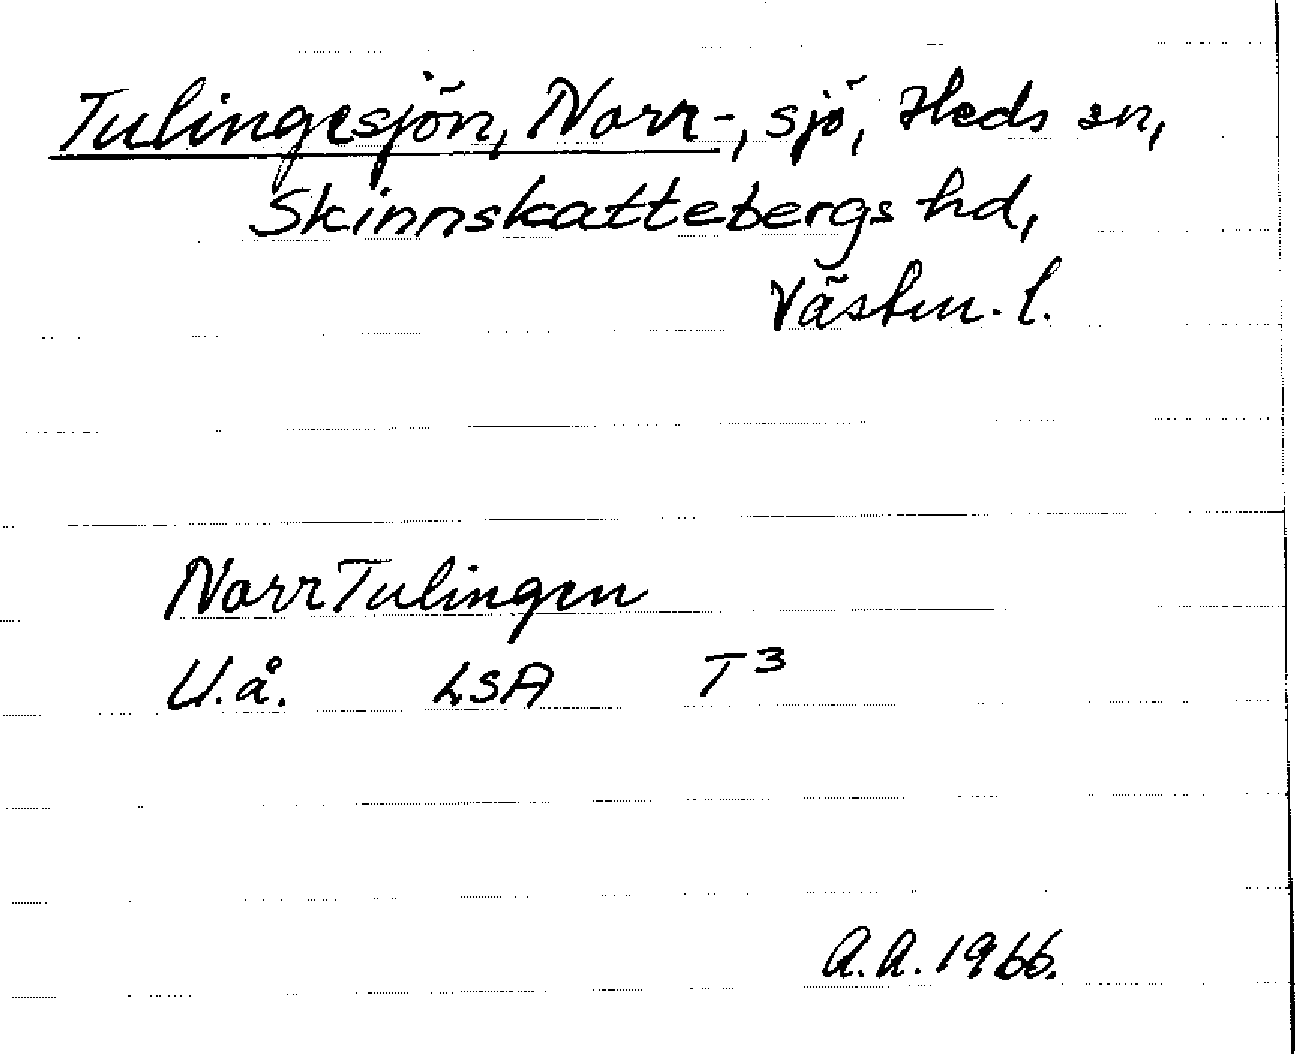 Tulingesjön, Norr-, sjö, Heds sn,
Skinnskattebergs hd,
Västm. l.
Norr Tulingen
U.å. LSA T3
A.A. 1966.